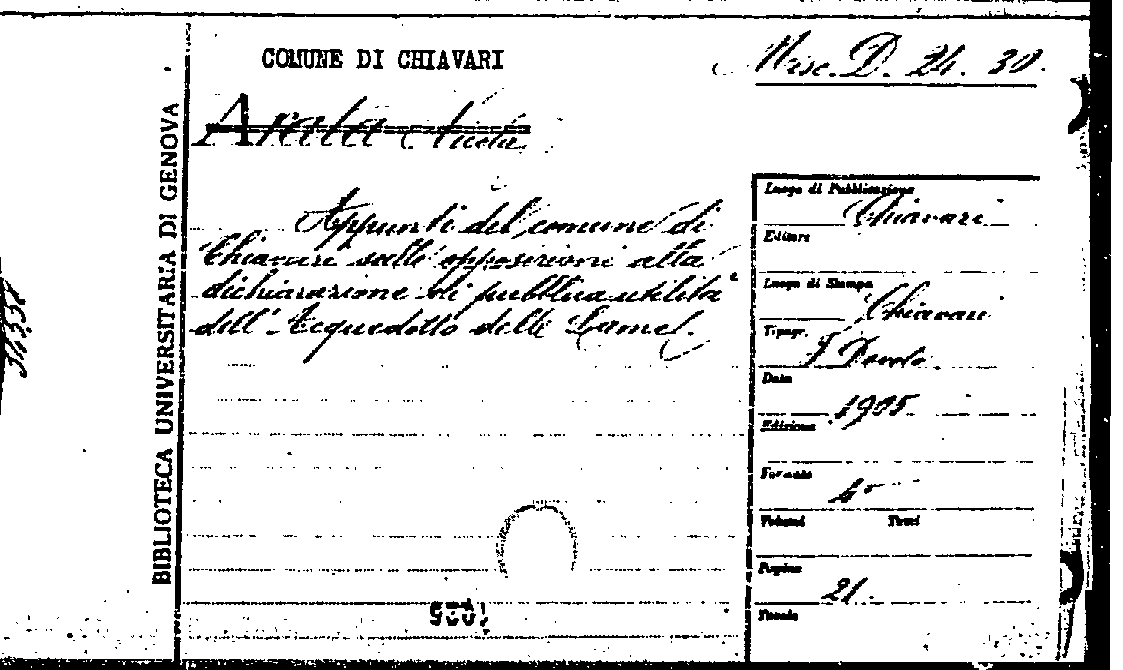 COMUNE DI CHIAVARI
Misc. D. 24. 30.
Arata
Appunti del comune di
Chiavari sulle opposizioni alla
dichiarazione di pubblica utilità
dell'Acquedotto delle
BIBLIOTECA UNIVERSITARIA DI GENOVA
Luogo di Pubblicazione
Chiavari
Editore
Luogo di Stampa
Chiavari
Tipogr.
Data
1905
Edizione
Formato
Volumi Tomi
Pagine
21.
Tavole